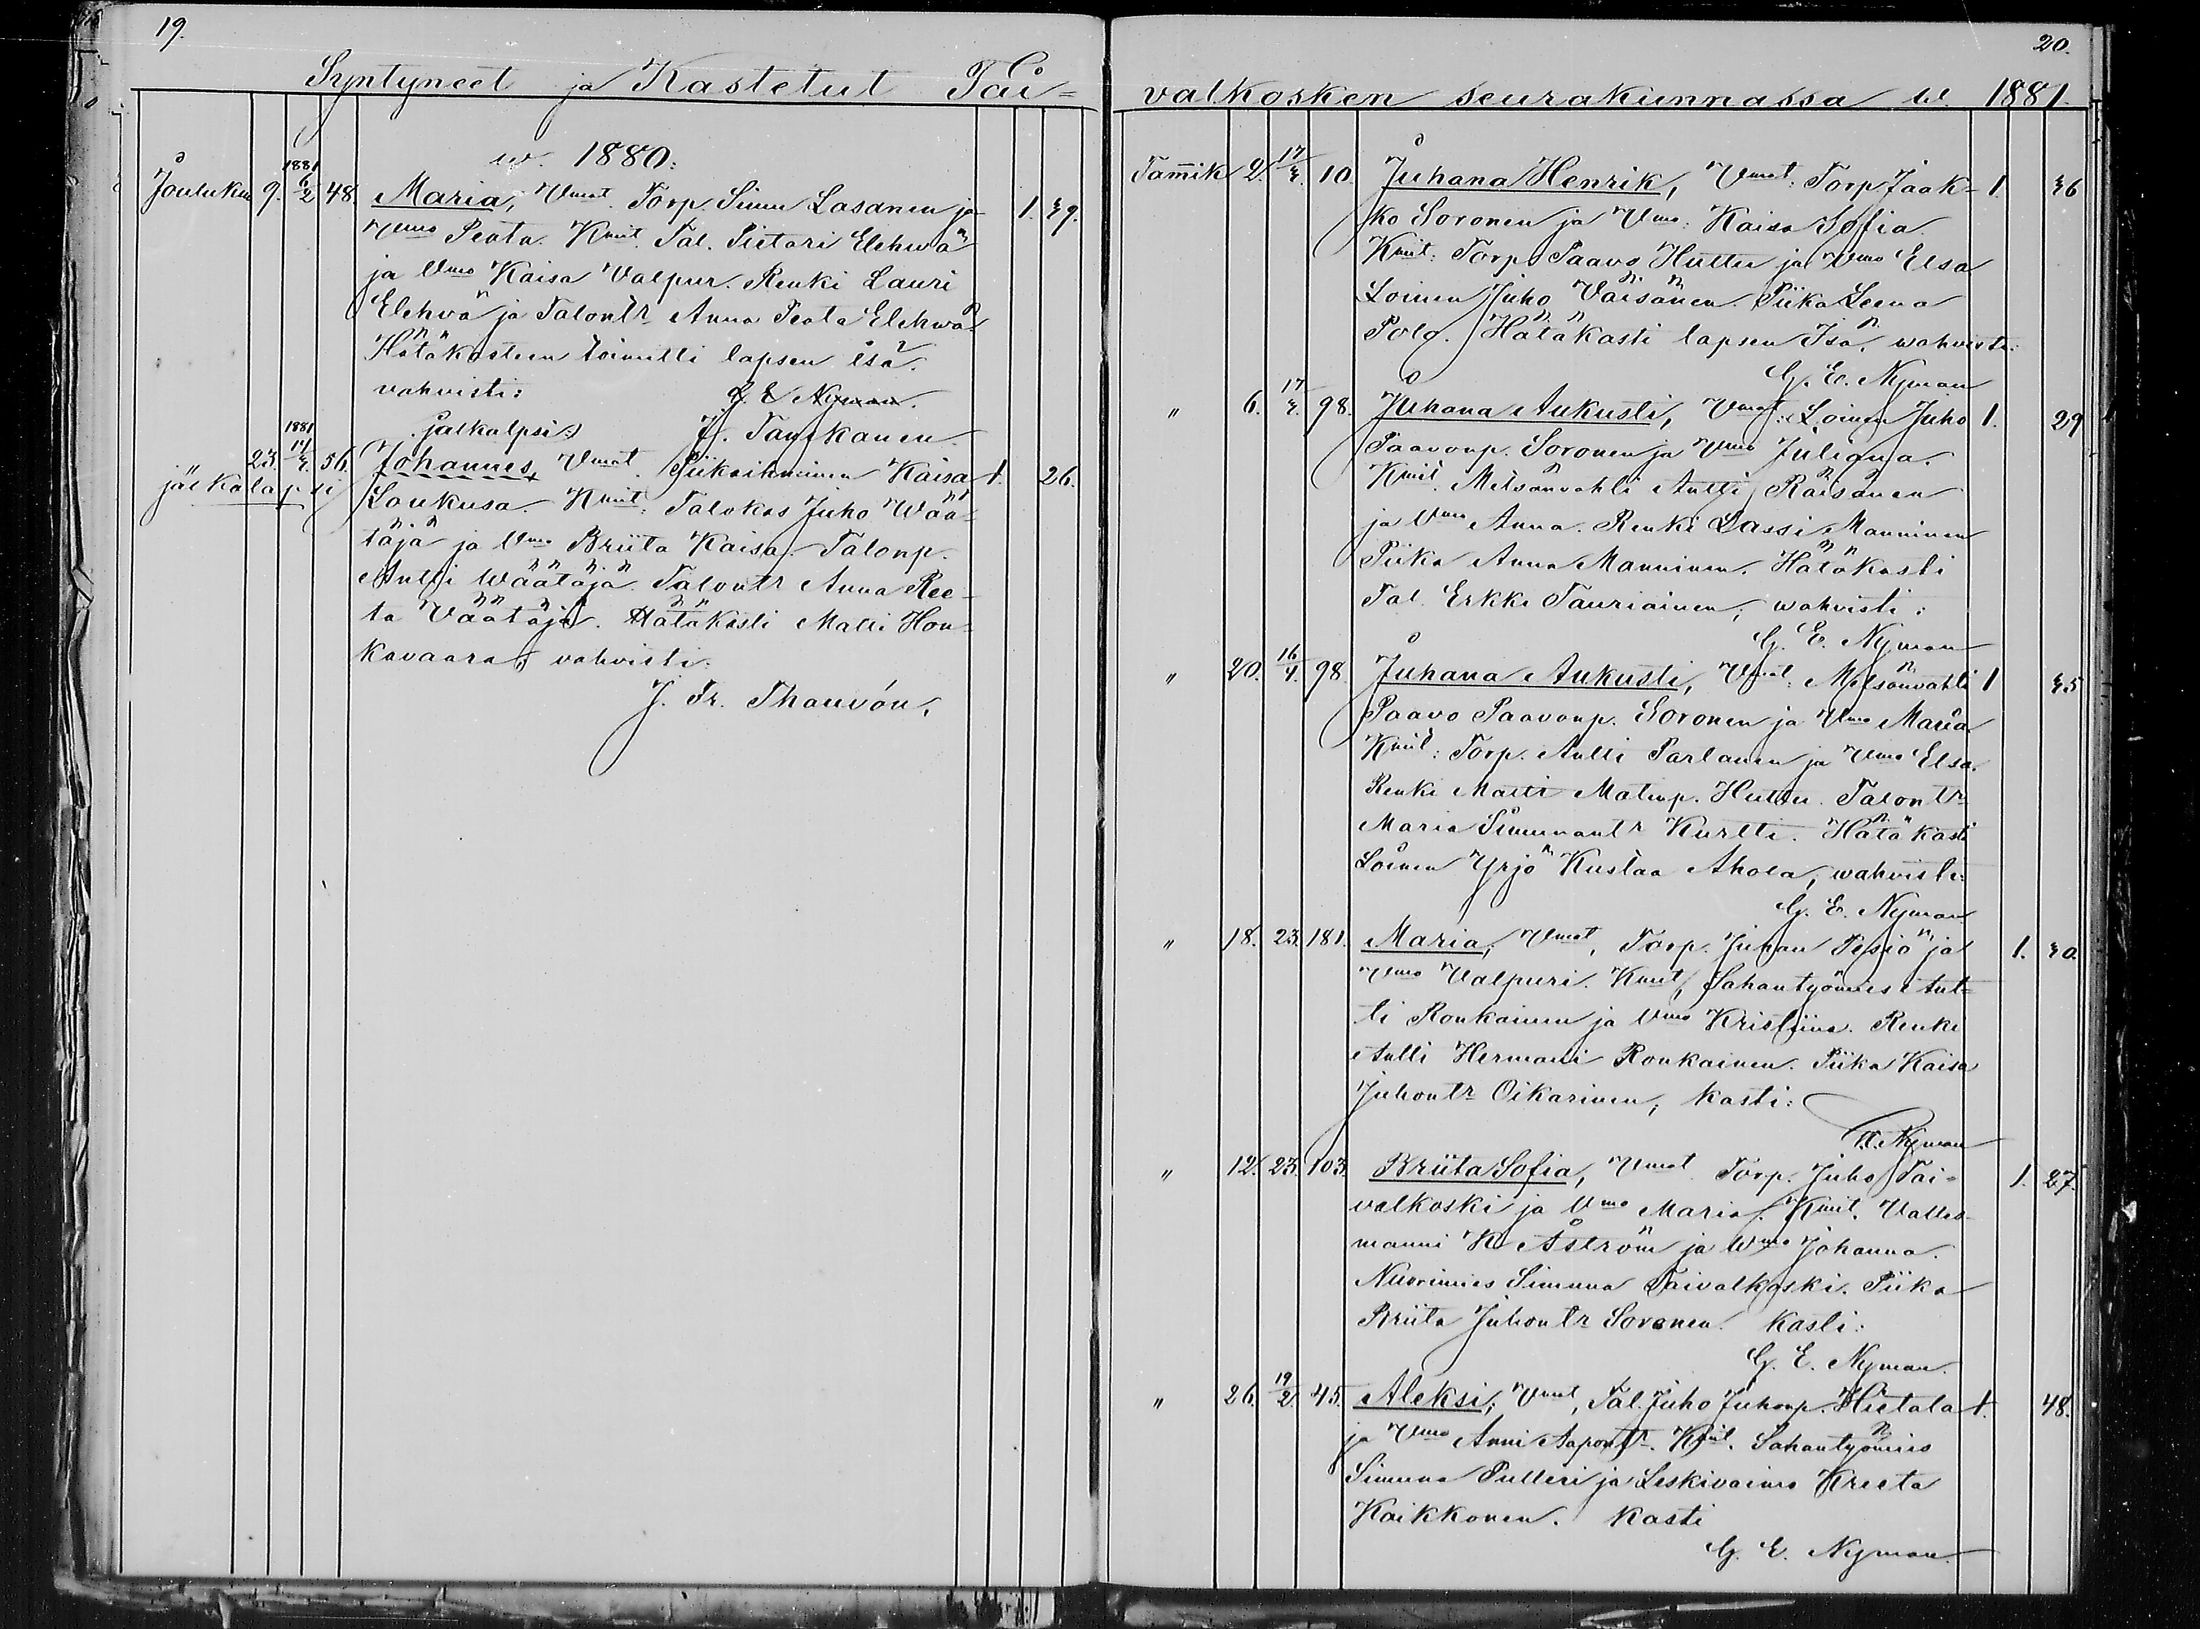 19.
Syntyneet ja Kastetut Tai=
w. 1880:
Jouluku 9. 1881 6/2 48. Maria, Vmat. Torp. Simu Lasanen ja 1. 39.
Vmo Peata. Kmit. Tal. Pietari Elehwä
ja Vmo Kaisa Valpur. Renki Lauri
Elehvä ja Talontr Anna Peata Elehwä
Hätäkasteen toimitti lapsen isä.
vahvisti: G. E. Nyman.
jälkalpsi) J. Tanskanen.
23. 1881 14/3. 56. Johannes, Vmat. Piikaihminen Kaisa 1. 26.
jälkälapsi Loukusa. Kmit: Talokas Juho Wää-
täjä ja Vmo Briita Kaisa. Talonp.
Antti Wäätäjä. Talontr Anna Ree-
ta Väätäjä. Hätäkasti Matti Hon-
kavaara, vahvisti:
J. Fr. Thauvón.
20.
valkosken seurakunnassa w. 1881.
Tam̅ik 2. 17/3. 10. Juhana Henrik, Vmat: Torp. Jaak- 1. 36
ko Soronen ja Vmo: Kaisa Sofia.
Kmit: Torp. Paavo Huttu ja Vmo Elsa
Loinen Juho Väisänen. Piika Leena
Polo. Hätäkasti lapsen Isä, wahvisti:
G. E. Nyman
" 6. 17/3. 98. Juhana Aukusti, Vmat: Loinen Juho 1. 29
Paavonp. Soronen ja Vmo Juliana.
Kmit. Metsänvahti Antti Räisänen
ja Vmo Anna. Renki Lassi Manninen
Piika Anna Manninen. Hätäkasti
Tal. Erkki Tauriainen, wahvisti:
G. E. Nyman
" 20. 16/4. 98. Juhana Aukusti, Vmat: Metsänvahti 1 35
Paavo Paavonp. Soronen ja Vmo Maria.
Kmit: Torp. Antti Parlanen ja Vmo Elsa.
Renki Matti Matinp. Huttu. Talontr
Maria Simunantr Kurtti. Hätäkasti
Loinen Yrjö Kustaa Ahola, wahvisti:
G. E. Nyman
" 18. 23. 181. Maria, Vmat, Torp. Juhan Pesiö ja 1. 30.
Vmo Valpuri. Kmit, Sahantyömies Ant-
ti Ronkainen ja Vmo Kristiina. Renki
Antti Hermanni Ronkainen. Piika Kaisa
Juhontr Oikarinen, kasti:
G. Nyman
" 12. 23. 103. Briita Sofia, Vmat. Torp. Juho Tai- 1. 27.
valkoski ja Vmo Maria. Kmit. Valles-
manni K. Åström ja Wmo Johanna.
Nuorimies Simuna Taivalkoski. Piika
Briita Juhontr Soronen. Kasti:
G. E. Nyman.
" 26. 19/2. 45. Aleksi; Vmat, Tal. Juho Juhonp. Hietala 1. 48.
ja Vmo Anni Aapontr. Kmit. Sahantyömies
Simuna Putteri ja Leskivaimo Kreeta
Kaikkonen. Kasti
G. E. Nyman.